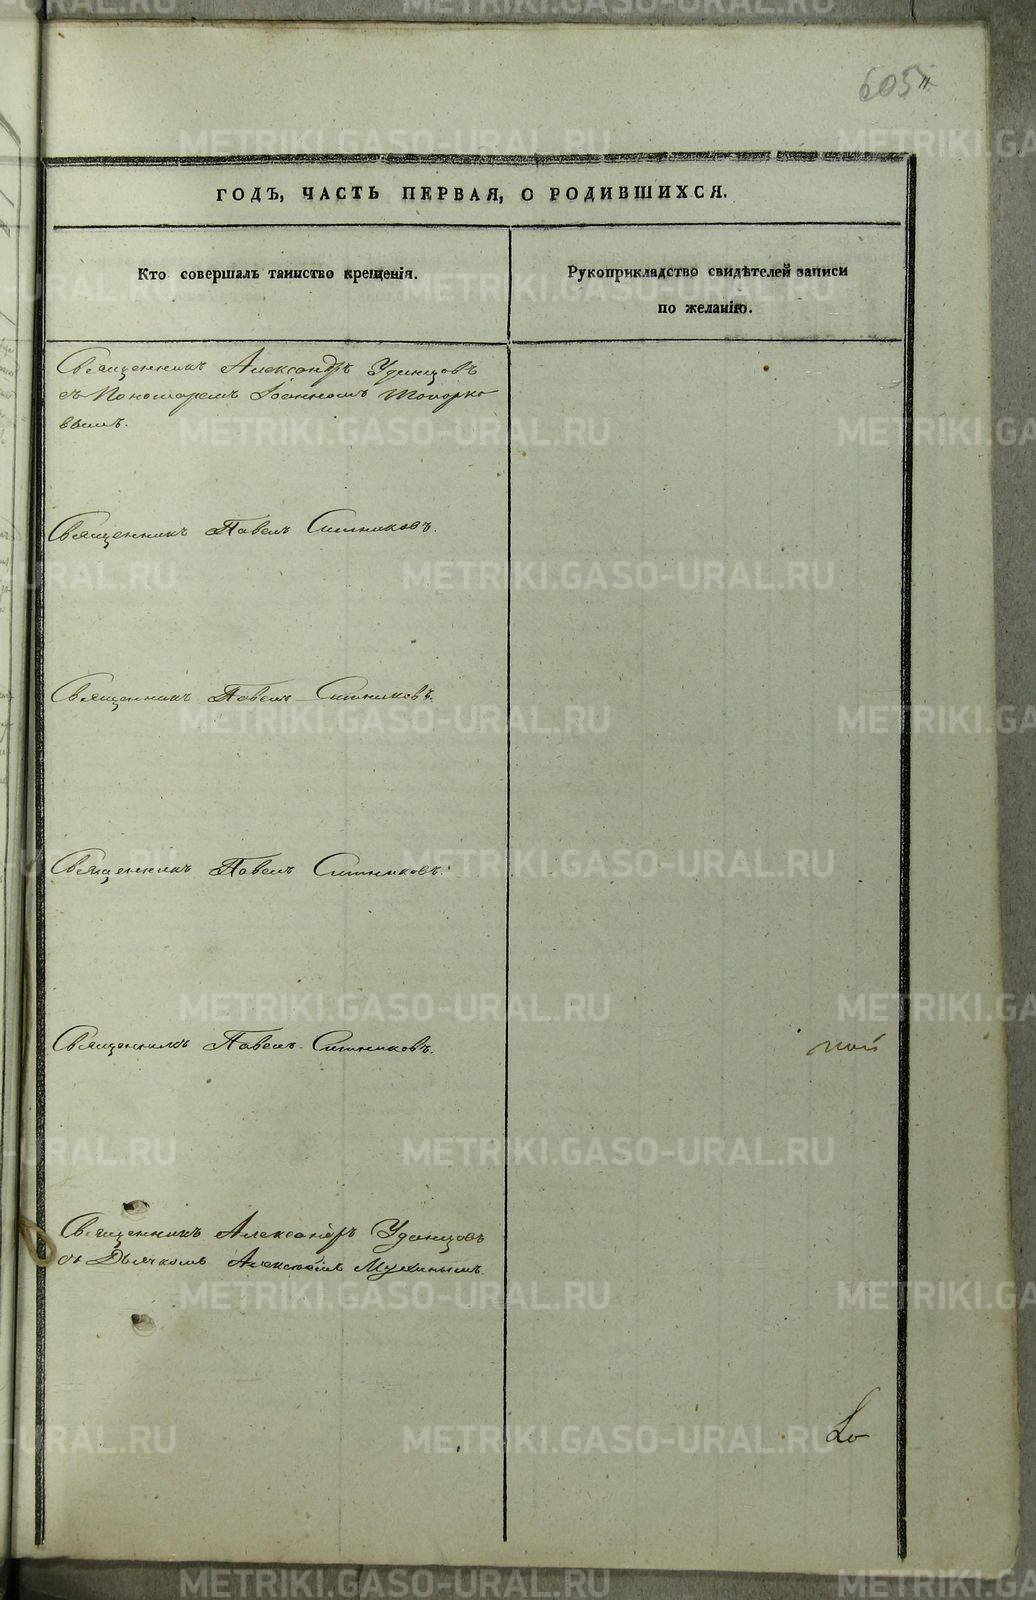 605
ГОДЪ, ЧАСТЬ ПЕРВАЯ, О РОДИВШИХСЯ.
Кто совершалъ таинство крещенія.
Рукоприкладство свидѣтелей записи
по желанію.
Священникъ Александръ Удинцовъ
съ Пономаремъ Іоанномъ Топорко
вымъ.
Священникъ Павелъ Ситниковъ.
Священникъ Павелъ Ситниковъ.
Священникъ Павелъ Ситниковъ.
Священникъ Павелъ Ситниковъ.
Священникъ Александръ Удинцовъ
съ Дьячкомъ Алексѣемъ Мухинымъ.
METRIKI.GASO-URAL.RU